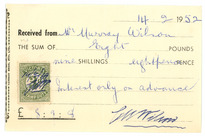 14 2 1952
Received from Mr Murray Wilson
THE SUM OF Eight POUNDS
nine SHILLINGS eight PENCE
Interest only on advance
£ 8 : 9 : 8